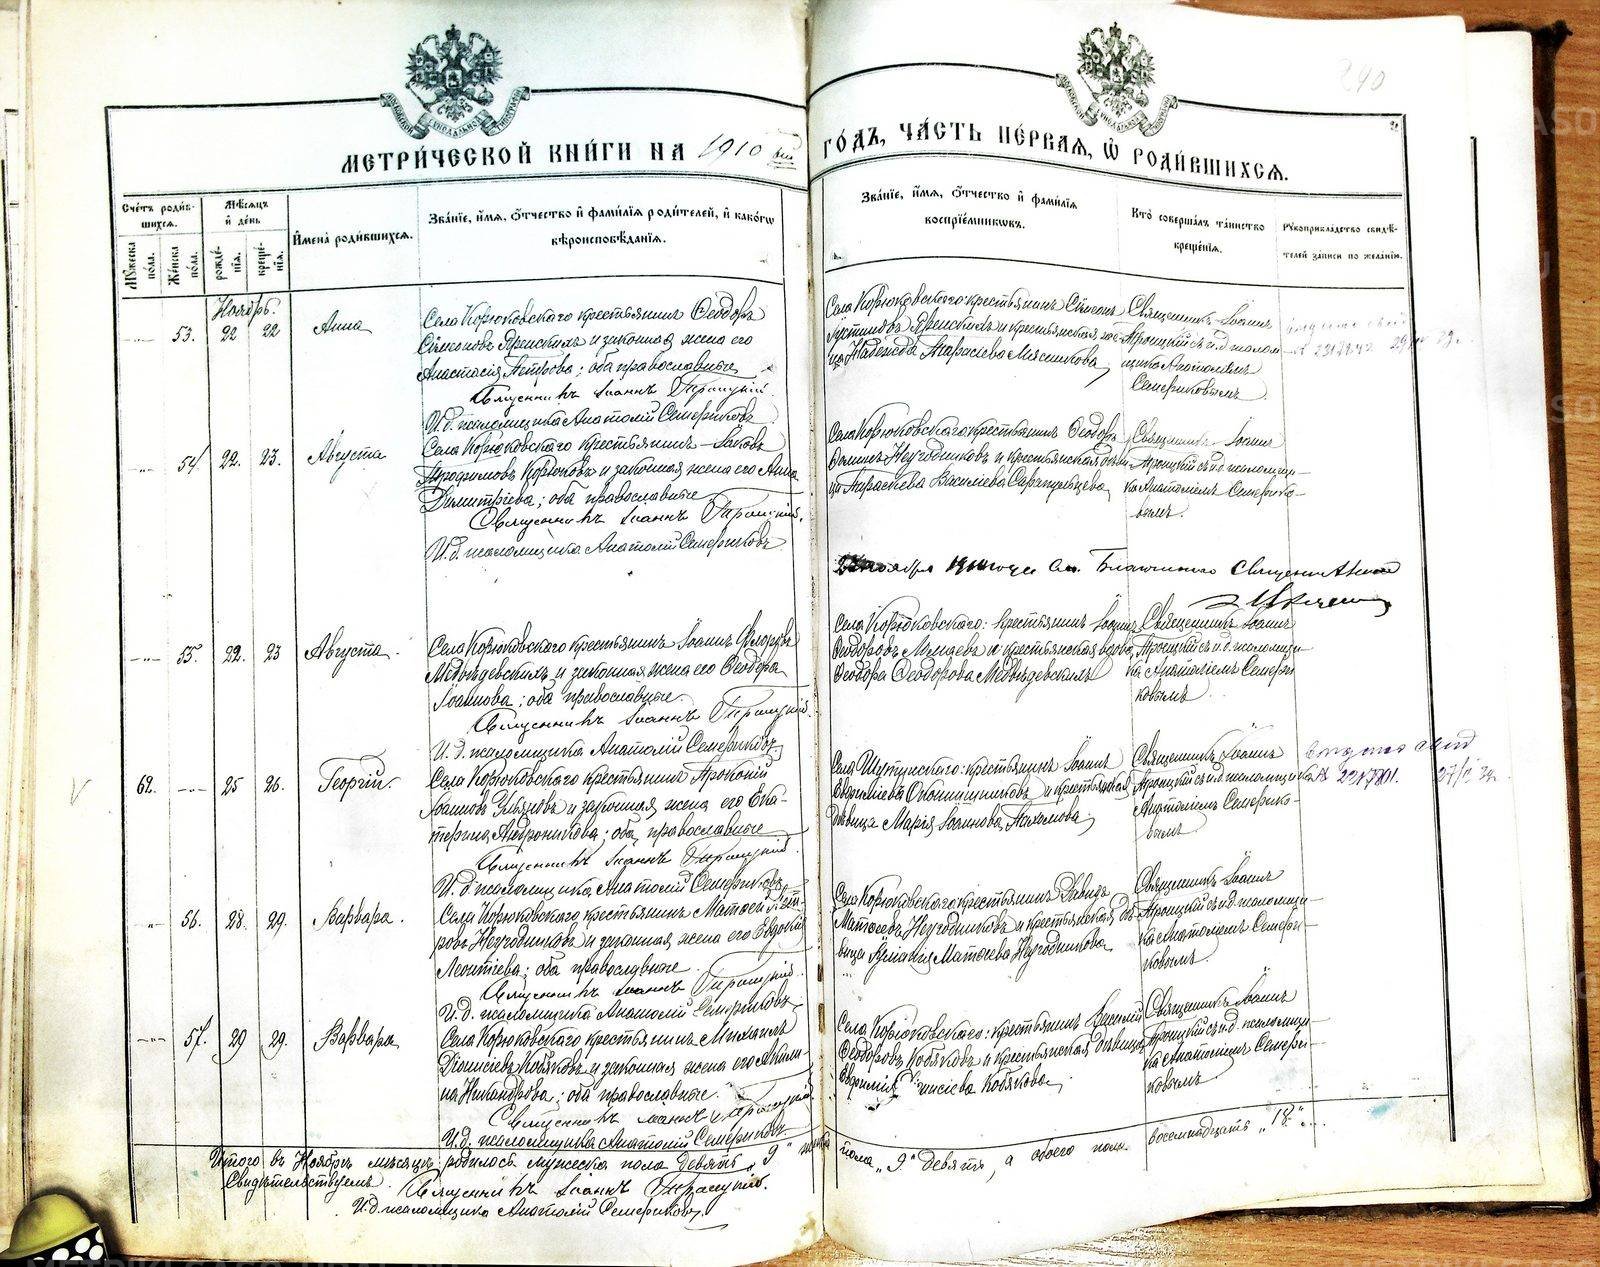 МЕТРИ́ЧЕСКОЙ КНИ́ГИ НА 1910 й
ГО́ДЪ, ЧА́СТЬ ПЕ́РВАЯ, Ѡ РОДИ́ВШИХСЯ.
240
Сче́тъ роди́в-
шихся.
Му́жеска
пола.
Же́нска
по́ла.
Мѣ́сяцъ
и де́нь
рожде́-
нїя.
креще́-
нїя.
Имена̀ роди́вшихся.
Зва́нїе, и́мя, о́тчество и фами́лїя роди́телей, и како́гѡ
вѣроисповѣ́данїя.
Зва́нїе, и́мя, о́тчество и фами́лїя
воспрїе́мникѡвъ.
Кто̀ соверша́лъ та́инство
креще́нїя.
Рꙋкоприкла́дство свидѣ́-
телей за́писи по жела́нїю.
Ноябрь.
53. 22 22 Анна
Села Корюковскаго крестьянинъ Ѳеодоръ
Сѵмеоновъ Яренскихъ и законная жена его
Анастасія Петрова; оба православные
Священникъ Іоаннъ Троицкій.
И. д. псаломщика Анатолій Семериковъ
Села Корюковскаго крестьянинъ Сѵмеонъ
Іустиновъ Яренскихъ и крестьянская
Надежда Тарасіева Мясникова
Священникъ Іоаннъ
Троицкій съ и. д. псалом-
щика Анатоліемъ
Семериковымъ.
54. 22. 23. Августа
Села Корюковскаго крестьянинъ Іаковъ
Трофимовъ Корюковъ и законная жена его Анна
Димитріева; оба православные
Священникъ Іоаннъ Троицкій.
И. д. псаломщика Анатолій Семериковъ
Села Корюковскаго крестьянинъ Ѳеодоръ
Ѳоминъ Неугодниковъ и крестьянская
Василіева
Священникъ Іоаннъ
Троицкій съ и. д. псаломщи-
ка Анатоліемъ Семерико-
вымъ.
ноября 1910 года Благочинный Священникъ
55. 22. 23 Августа.
Села Корюковскаго крестьянинъ Іоаннъ Флоровъ
Медвѣдевскихъ и законная жена его Ѳеодора
Іоаннова; оба православные.
Священникъ Іоаннъ Троицкій.
И. д. псаломщика Анатолій Семериковъ
Села Корюковскаго: крестьянинъ Іоаннъ
Ѳеодоровъ и крестьянская вдова
Ѳеодора Ѳеодорова Медвѣдевскихъ
Священникъ Іоаннъ
Троицкій съ и. д. псаломщи-
ка Анатоліемъ Семери-
ковымъ.
62. 25 26. Георгій.
Села Корюковскаго крестьянинъ Прокопій
Іоанновъ Ульяновъ и законная жена его Ека-
терина Андроникова; оба православные
Священникъ Іоаннъ Троицкій.
И. д. псаломщика Анатолій Семериковъ
Села Шутинскаго: крестьянинъ Іоаннъ
Евфиміевъ и крестьянская
дѣвица Марія Іоаннова Пахомова
Священникъ Іоаннъ
Троицкій съ и. д. псаломщика
Анатоліемъ Семерико-
вымъ
56. 28. 29. Варвара.
Села Корюковскаго крестьянинъ Матѳей Пет-
ровъ Неугодниковъ и законная жена его Евдокія
Леонтіева; оба православные
Священникъ Іоаннъ Троицкій.
И. д. псаломщика Анатолій Семериковъ
Села Корюковскаго крестьянинъ Давидъ
Матѳеевъ Неугодниковъ и крестьянская дѣ-
вица Матѳеева Неугодникова
Священникъ Іоаннъ
Троицкій съ и. д. псаломщи-
ка Анатоліемъ Семери-
ковымъ.
57. 29 29. Варвара
Села Корюковскаго крестьянинъ Михаилъ
Діонисіевъ Кобяковъ и законная жена его Акили-
на Никандрова; оба православные.
Священникъ Іоаннъ Троицкій
И. д. псаломщика Анатолій Семериковъ
Села Корюковскаго: крестьянинъ Василій
Ѳеодоровъ Кобяковъ и крестьянская дѣвица
Евфимія Кобякова
Священникъ Іоаннъ
Троицкій съ и. д. псаломщи-
ка Анатоліемъ Семери-
ковымъ
Итого въ Ноябрѣ мѣсяцѣ родилось мужеска пола девять „9" женска пола „9" девять, а обоего пола восемнадцать „18".
Свидѣтельствуемъ. Священникъ Іоаннъ Троицкій.
И. д. псаломщика Анатолій Семериковъ